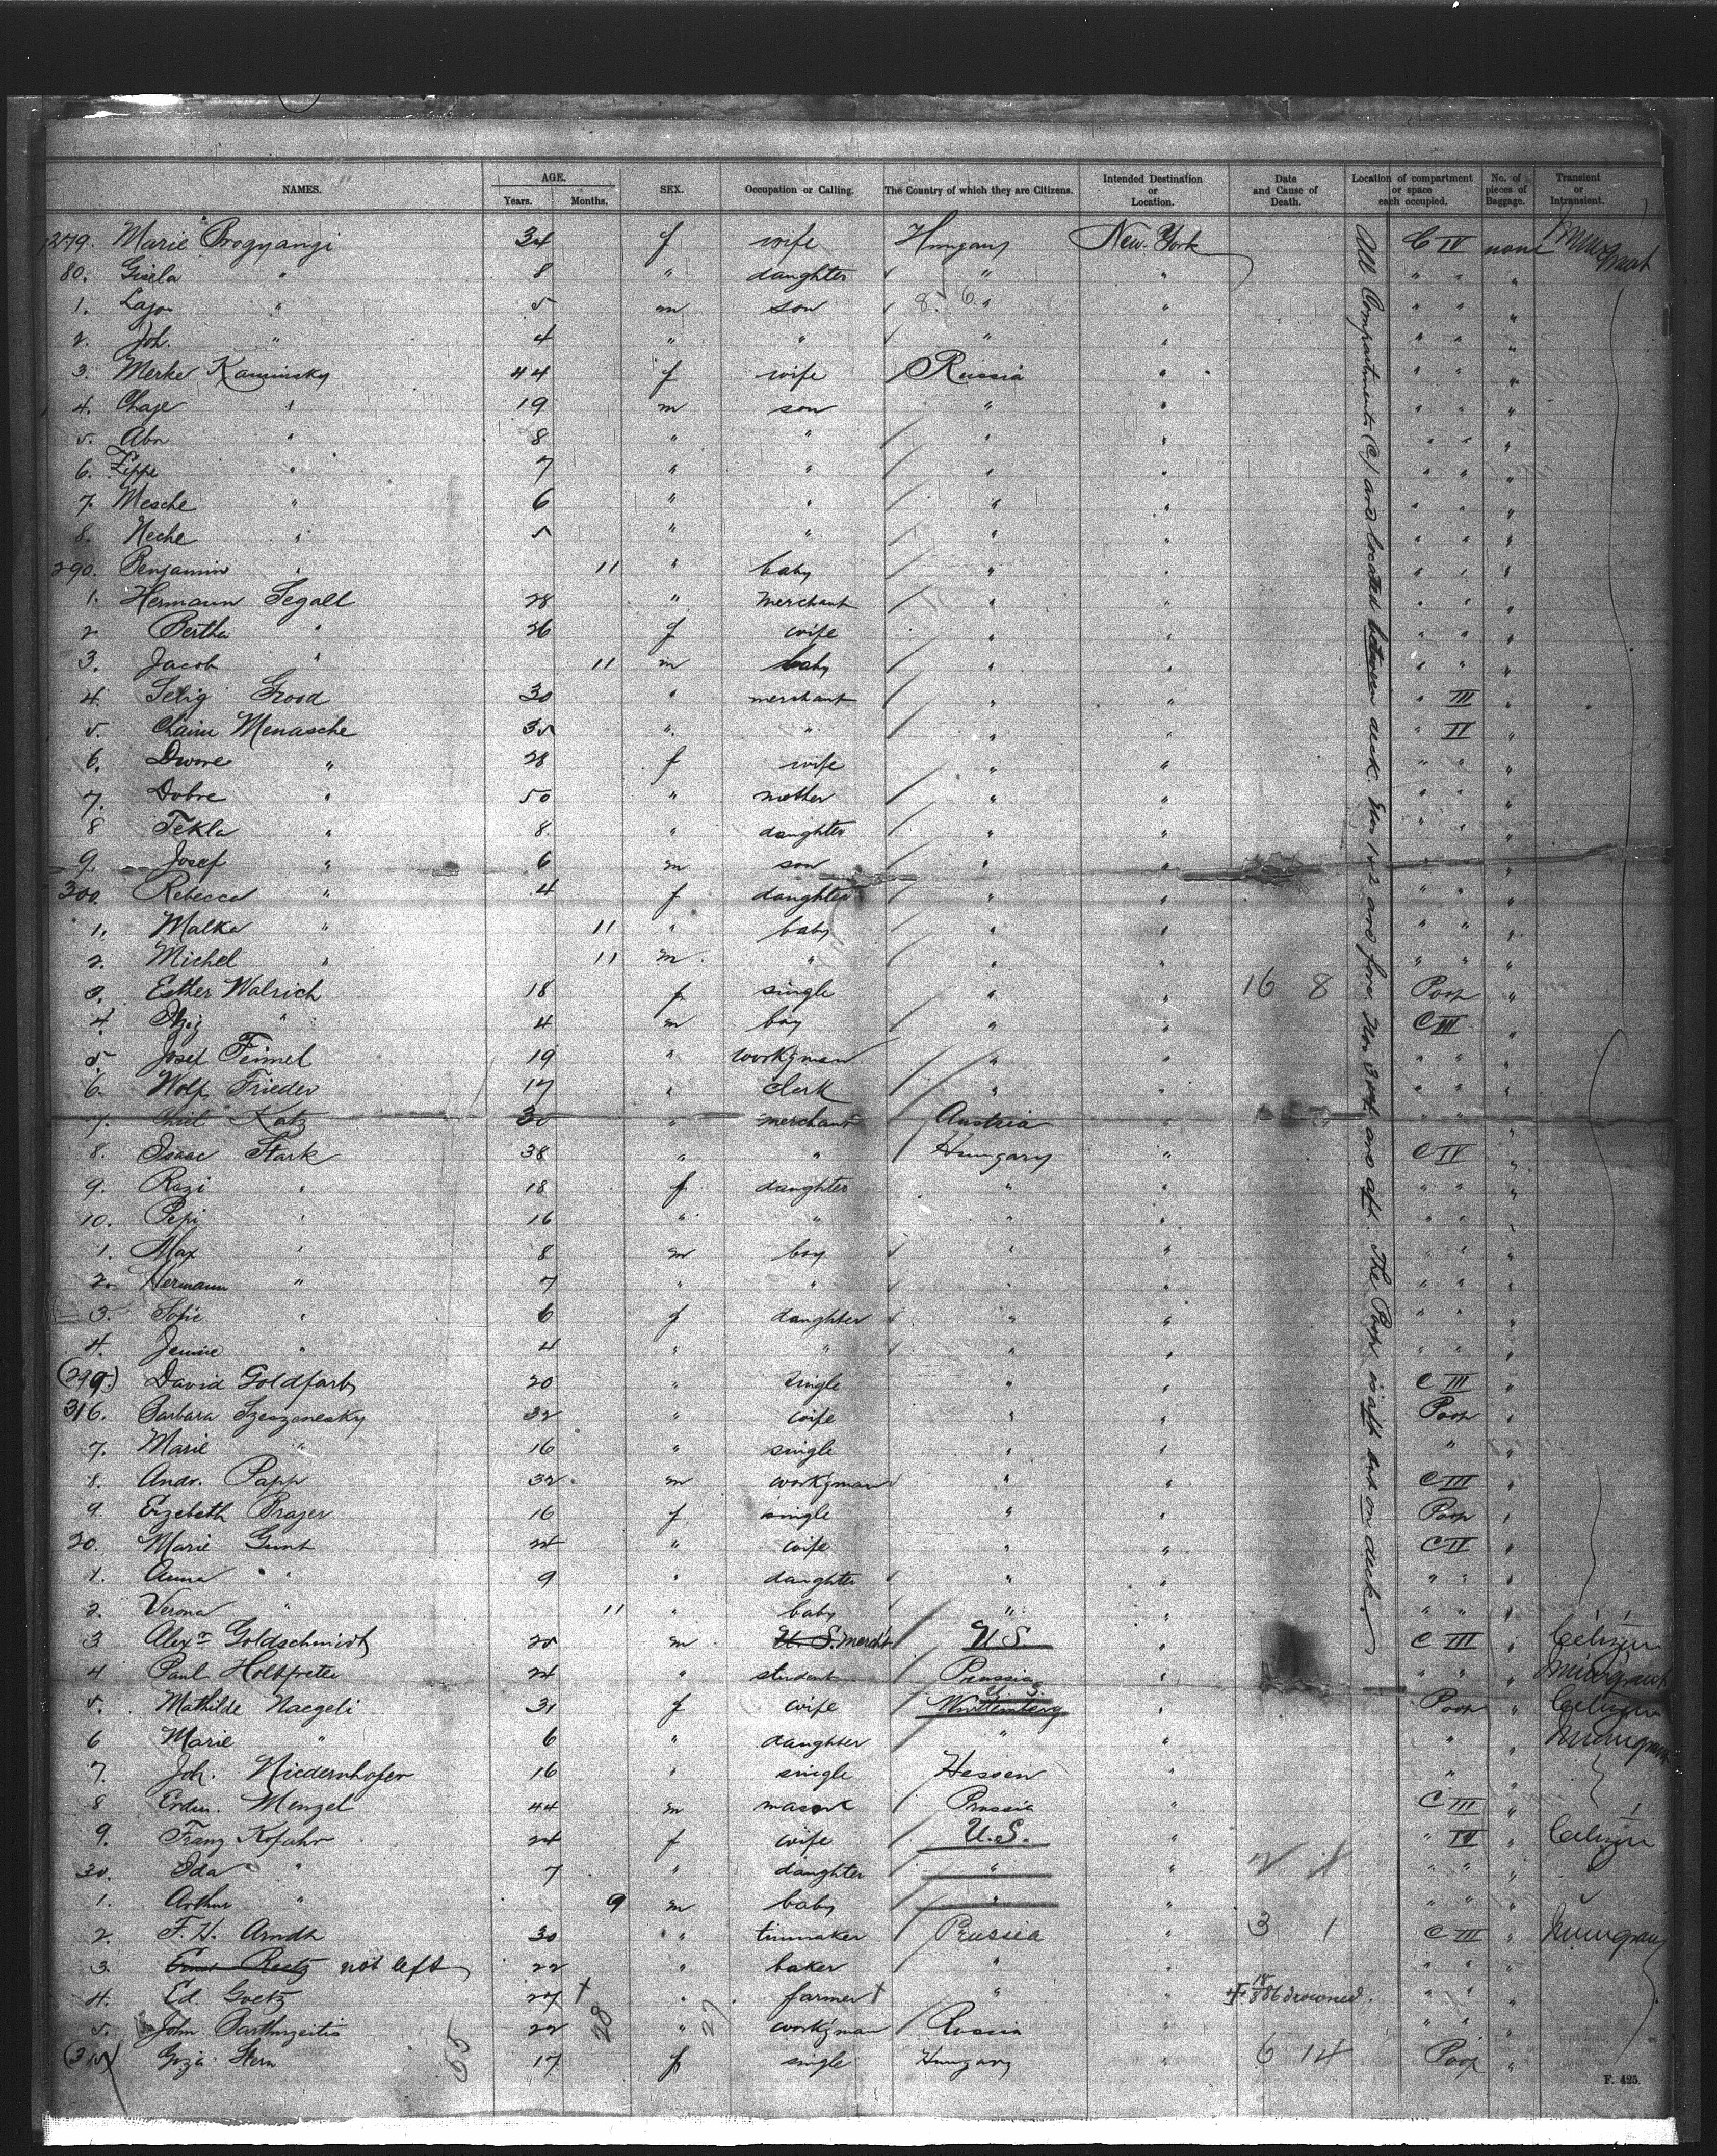 NAMES. AGE. Years. Months. SEX. Occupation or Calling. The Country of which they are Citizens. Intended Destination or Location. Date and Cause of Death. Location of compartment or space each occupied. No. of pieces of Baggage. Transient or Intransient.
279. Marie 34 f wife Hungary New-York C IV none
80. Gisela " 8 " daughter " " " " "
1. Lajos " 5 m son " " " " "
2. Joh. " 4 " " " " " " "
3. Merke Kaminsky 44 f wife Russia " " " "
4. Chaje " 19 m son " " " " "
5. Abr. " 8 " " " " " " "
6. Zippe " 7 " " " " " " "
7. Mesche " 6 " " " " " " "
8. Neche " 5 " " " " " " "
290. Benjamin " 11 " baby " " " " "
1. Hermann Segall 28 " Merchant " " " " "
2. Bertha " 26 f wife " " " " "
3. Jacob " 11 m baby " " " " "
4. Selig Grood 30 " merchant " " " III "
5. Chaim Menasche 35 " " " " " II "
6. Dwore " 28 f wife " " " " "
7. Dobre " 50 " mother " " " " "
8 Tekla " 8. " daughter " " " " "
9. Josef " 6 m son " " " " "
300. Rebecca " 4 f daughter " " " " "
1. Malke " 11 " baby " " " " "
2. Michel " 11 m. " " " " " "
3. Esther Walrich 18 f single " " 16 8 Poop "
4. " 4 m boy " " C III "
5. Josef Feimel 19 " workgman " " " " "
6. Wolf Frieder 17 " clerk " " " " "
7. Katz 30 " merchant Austria " " " "
8. Isaac Stark 38 " " Hungary " C IV "
9. Rozi " 18 f daughter " " " " "
10. Pepi " 16 " " " " " " "
1. Max " 8 m boy " " " " "
2. Hermann " 7 " " " " " " "
3. Sofie " 6 f daughter " " " " "
4. Jennie " 4 " " " " " " "
(295) David Goldfarb 20 " single " " C III "
316. Barbara Szeszenesky 32 " wife " " Poop "
7. Marie " 16 " single " " " "
8. Andr. Papp 32 m workgman " " C III "
9. Erzebeth Prazer 16 f single " " Poop "
20. Marie Gunt 24 " wife " " C IV "
1. Anna " 9 " daughter " " " " "
2. Verona " 11 " baby " " " " "
3 Alexr Goldschmidt 20 m U. S. Merch't U S. " C III " Citizen
4 Paul Holtfreter 24 " student Prussia " " " " Immigrant
5. Mathilde Naegeli 31 f wife Württemberg U. S. " Poop " Citizen
6 Marie " 6 " daughter " " " " Immigrant
7. Joh. Niedernhofer 16 " single Hessen " " "
8 Erdm. Menzel 44 m mason Prussia " C III "
9. Franz Kofahr 24 f wife U. S. " " IV " Citizen
30. Ida " 7 " daughter " " " " "
1. Arthur " 9 m baby " " " " "
2. F. H. Arndt 30 " tinmaker Prussia " 3 1 C III " Immigrant
3. Ernst Reetz not left 22 " baker " " " " "
4. Ed. Goetz 27 † " farmer † " " 18/86 drowned. " " "
5. John Parthurzeitis 22 " workgman Russia " " " "
Stern 17 f single Hungary " 6 14 Poop "
55 28 27
F. 425.
All Compartments (C) are located between deck. Nos 1 & 2 are fore, Nos 3 & 4 are aft. The Poop is aft but on deck.